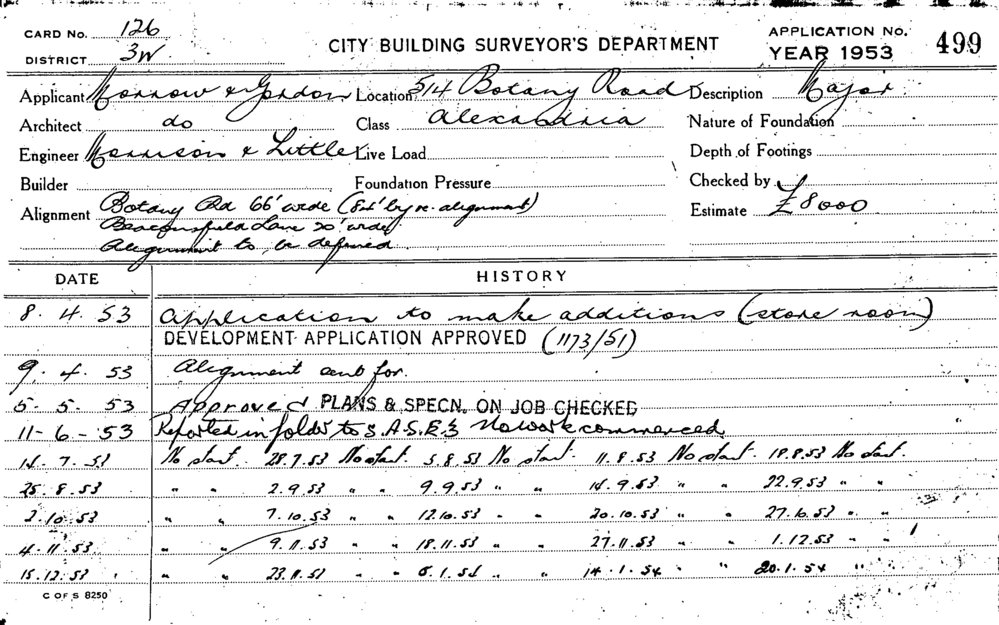 CARD No. 126
DISTRICT 3W
CITY BUILDING SURVEYOR'S DEPARTMENT
APPLICATION No. 499
YEAR 1953
Applicant Morrow & Gordon Location 514 Botany Road Description Major
Architect do Class Alexandria Nature of Foundation
Engineer Morrison & Little Live Load Depth of Footings
Builder Foundation Pressure Checked by
Alignment Botany Rd 66' wide (84' by re-alignment) Estimate £8000
Beaconsfield Lane 20' wide
Alignment to be defined
DATE HISTORY
8.4.53 Application to make additions (store room)
DEVELOPMENT APPLICATION APPROVED (1173/51)
9.4.53 Alignment sent for.
5.5.53 Approved PLANS & SPECN. ON JOB CHECKED
11-6-53 Reported in folder to S.A.S.E.3 No work commenced
14.7.53 No start. 28.7.53 No start. 5.8.53 No start. 11.8.53 No start. 18.8.53 No start.
25.8.53 " " 2.9.53 " " 9.9.53 " " 14.9.53 " " 22.9.53 " "
2.10.53 " " 7.10.53 " " 12.10.53 " " 20.10.53 " " 27.10.53 " "
4.11.53 " " 9.11.53 " " 18.11.53 " " 27.11.53 " " 1.12.53 " "
15.12.53 " " " " " 14.1.54 " " 20.1.54 "
C OF S 8250